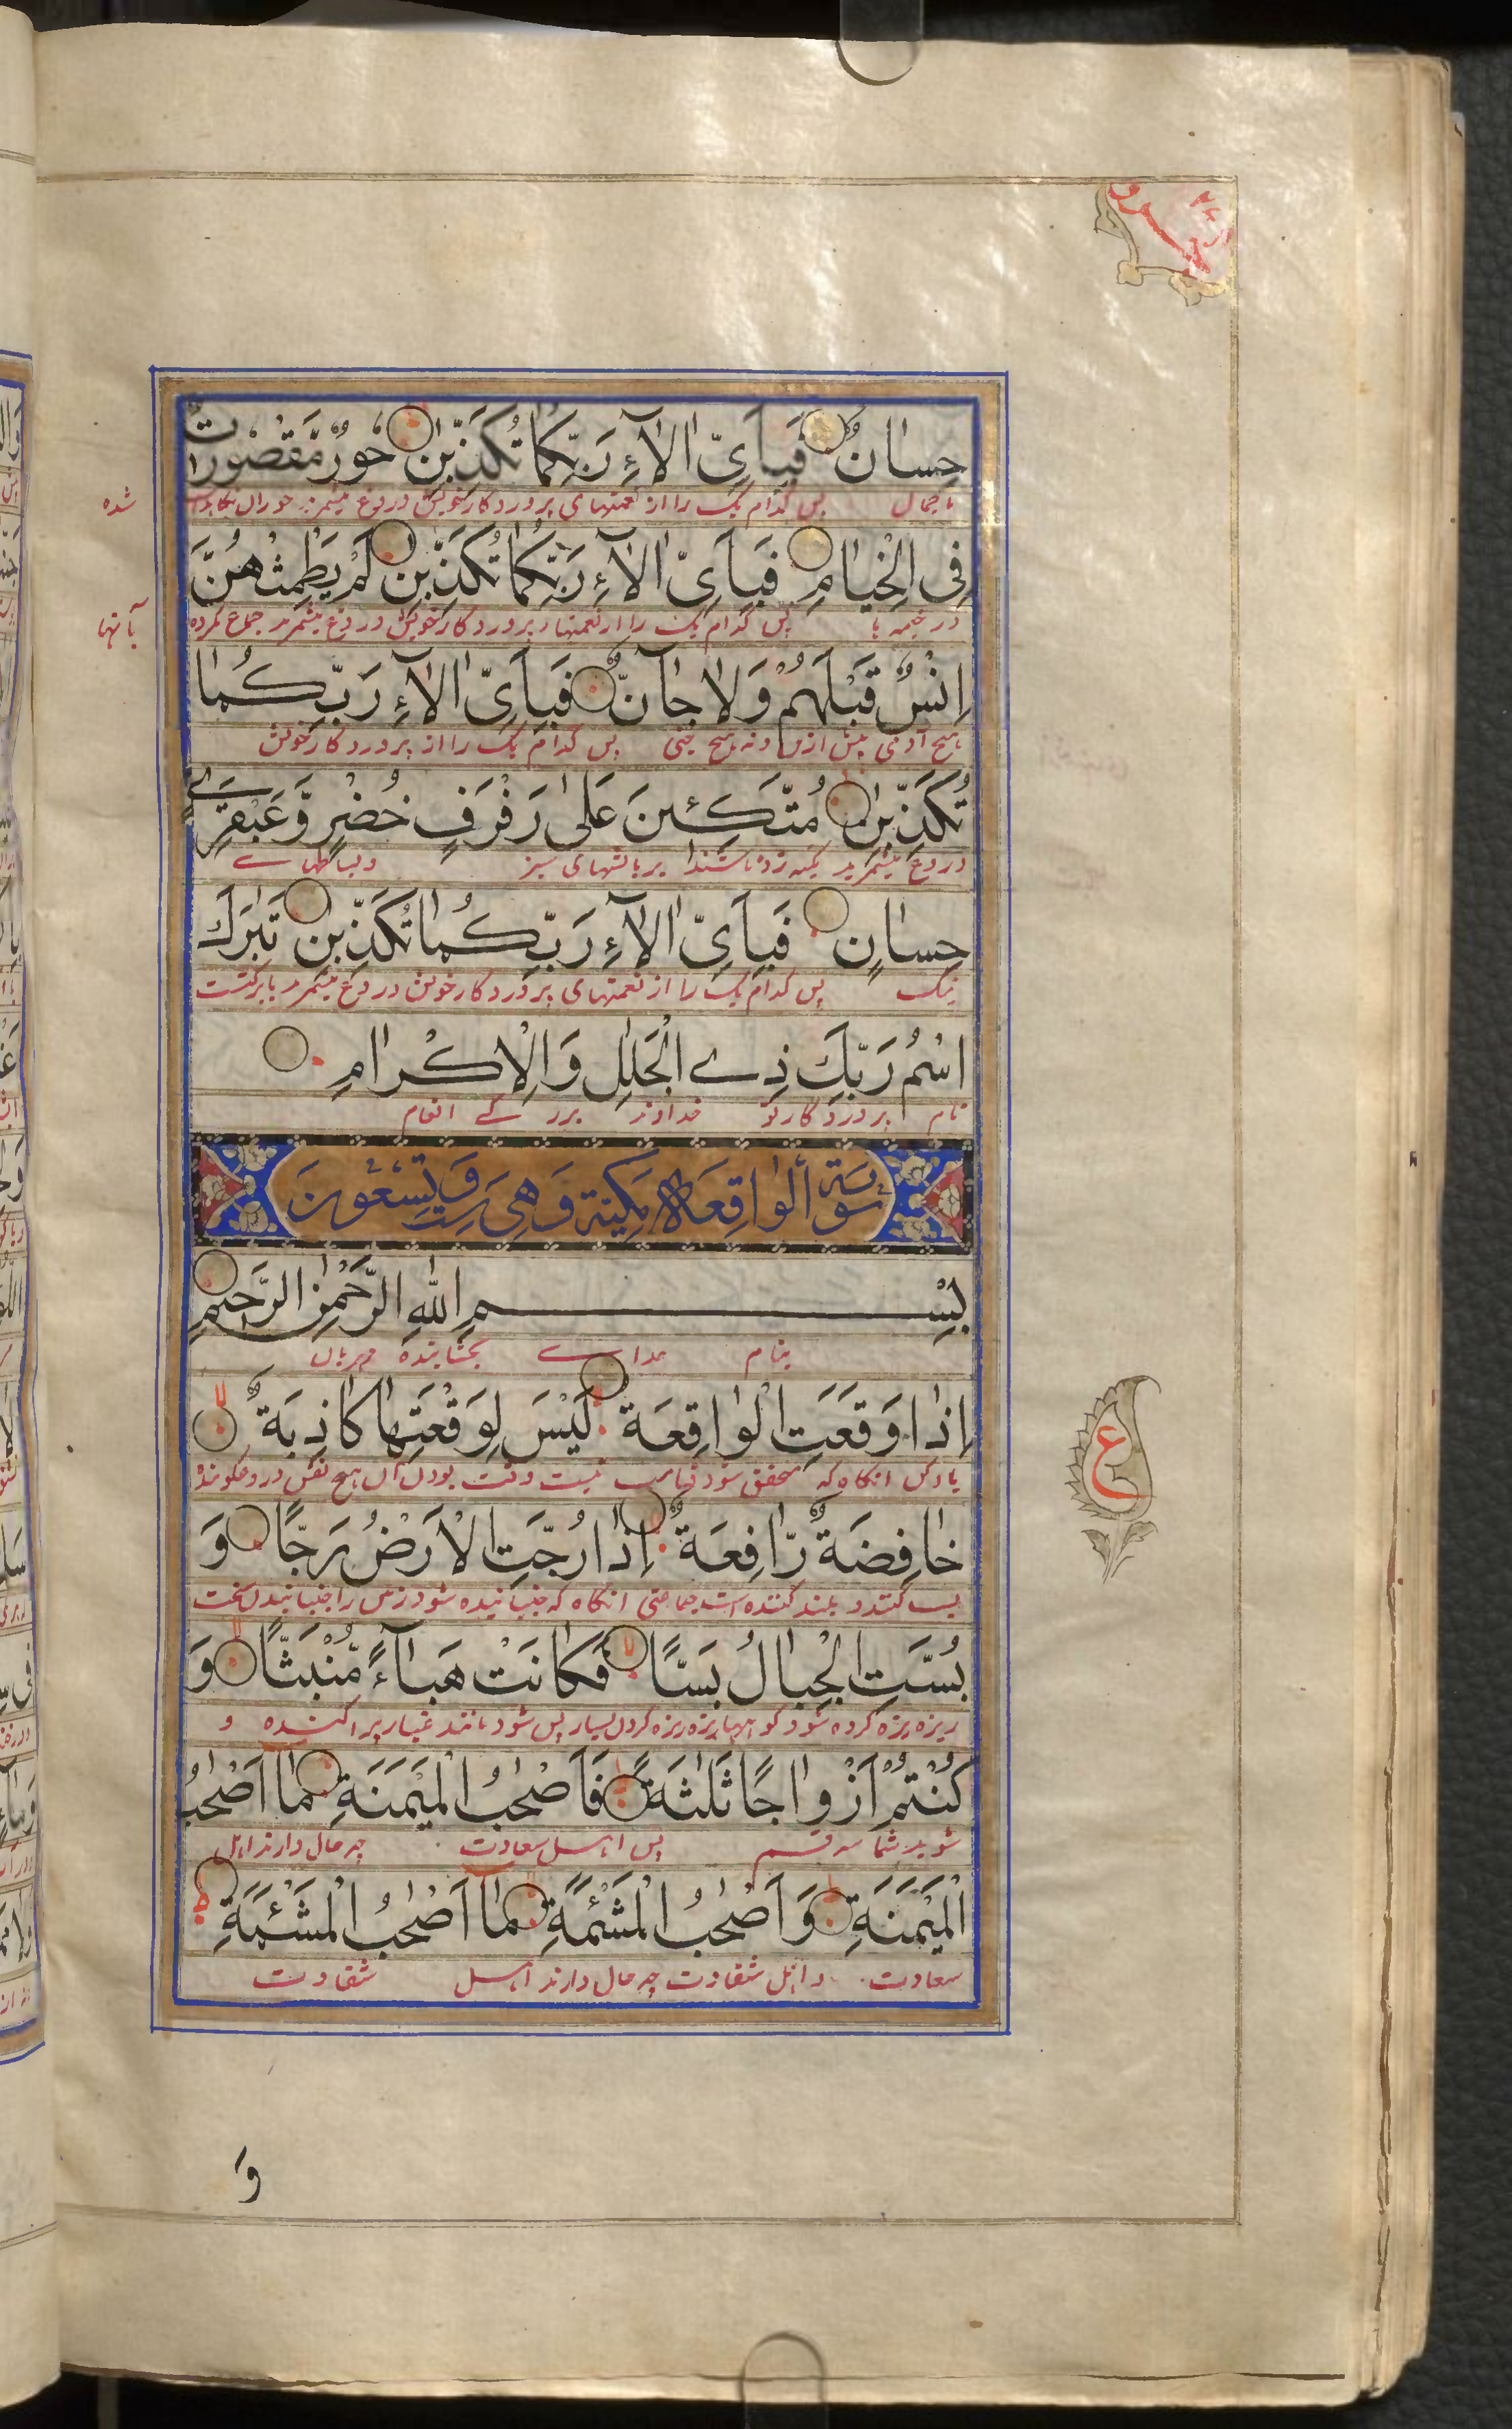 حِسَانٌ فَبِاَىِّ اٰلَآءِ رَبِّكُمَا تُكَذِّبٰنِ حُورٌ مَّقْصُورٰتٌ
با جمال پس کدام یک را از نعمتهای پروردگار خویش دروغ میشمرید حوران
شده
فِى الْخِيَامِ فَبِاَىِّ اٰلَآءِ رَبِّكُمَا تُكَذِّبٰنِ لَمْ يَطْمِثْهُنَّ
در خیمه ها پس کدام یک را از نعمتهاء پروردگار خویش دروغ میشمرید جماع نکرده
بآنها
اِنْسٌ قَبْلَهُمْ وَلَا جَآنٌّ فَبِاَىِّ اٰلَآءِ رَبِّكُمَا
هیچ آدمی پیش ازین و نه هیچ جنی پس کدام یک را از پروردگار خویش
تُكَذِّبٰنِ مُتَّكِـِٔينَ عَلٰى رَفْرَفٍ خُضْرٍ وَّعَبْقَرِىٍّ
دروغ میشمرید تکیه زده باشند بر بالشهای سبز
حِسَانٍ فَبِاَىِّ اٰلَآءِ رَبِّكُمَا تُكَذِّبٰنِ تَبٰرَكَ
نیک پس کدام یک را از نعمتهای پروردگار خویش دروغ میشمرید بابرکتست
اسْمُ رَبِّكَ ذِى الْجَلٰلِ وَالْاِكْرَامِ
نام پروردگار تو خداوند بزرگے انعام
سُورَةُ الْوَاقِعَةِ مَكِّيَّةٌ وَهِىَ سِتٌّ وَتِسْعُونَ
بِسْمِ اللّٰهِ الرَّحْمٰنِ الرَّحِيمِ
بنام خداے بخشاینده مهربان
اِذَا وَقَعَتِ الْوَاقِعَةُ لَيْسَ لِوَقْعَتِهَا كَاذِبَةٌ
یاد کن آنگاه که متحقق شود قیامت نیست وقت بودن آن هیچ نفس دروغگوینده
خَافِضَةٌ رَّافِعَةٌ اِذَا رُجَّتِ الْاَرْضُ رَجًّا وَ
پست کننده و بلند کننده است جماعتی آنگاه که جنبانیده شود زمین را جنبانیدن سخت
بُسَّتِ الْجِبَالُ بَسًّا فَكَانَتْ هَبَآءً مُّنْبَثًّا وَ
ریزه ریزه کرده شود کوهها ریزه ریزه کردن بسیار پس شود مانند غبار پراکنده و
كُنْتُمْ اَزْوَاجًا ثَلٰثَةً فَاَصْحٰبُ الْمَيْمَنَةِ مَا اَصْحٰبُ
شوید شما سه قسم پس اهل سعادت چه حال دارند اهل
الْمَيْمَنَةِ وَاَصْحٰبُ الْمَشْـَٔمَةِ مَا اَصْحٰبُ الْمَشْـَٔمَةِ
سعادت و اهل شقاوت چه حال دارند اهل شقاوت
ع
وَ